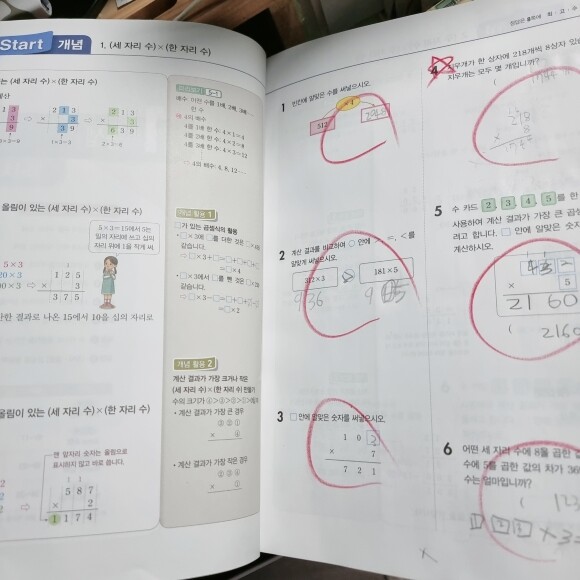 Start 개념
1. (세 자리 수)×(한 자리 수)
는 (세 자리 수)×(한 자리 수)
계산
2 1 3
3
3 9
1×3=3
2 1 3
3
6 3 9
2×3=6
올림이 있는 (세 자리 수)×(한 자리 수)
5×3=15에서 5는
일의 자리에 쓰고 십의
자리 위에 1을 작게 써
5×3
20×3
00×3
1 2 5
× 3
3 7 5
산한 결과로 나온 15에서 10을 십의 자리로
올림이 있는 (세 자리 수)×(한 자리 수)
맨 앞자리 숫자는 올림으로
표시하지 않고 바로 씁니다.
5 8 7
× 2
1 1 7 4
5-1
4의 배수
4를 1배 한 수: 4×1=4
4를 2배 한 수: 4×2=8
4를 3배 한 수: 4×3=12
⇨ 4의 배수: 4, 8, 12
개념 활용 1
□가 있는 곱셈식의 활용
• □×3에 □를 더한 것은 □×4와
같습니다.
⇨ □×3+□=□+□+□+□
=□×4
• □×3에서 □를 뺀 것은 □×2와
같습니다.
⇨ □×3-□=□+□+□-□
=□×2
개념 활용 2
계산 결과가 가장 크거나 작은
(세 자리 수)×(한 자리 수) 만들기
• 계산 결과가 가장 큰 경우
③ ② ①
× ④
• 계산 결과가 가장 작은 경우
× ①
정답은
1 빈칸에 알맞은 수를 써넣으시오.
512
2 계산 결과를 비교하여 ○ 안에 >, =, <를
알맞게 써넣으시오.
312×3
>
181×5
936
9
3 □ 안에 알맞은 숫자를 써넣으시오.
1 0 3
× 7
7 2 1
4 지우개가 한 상자에 218개씩 8상자 있
지우개는 모두 몇 개입니까?
(
218
8
5 수 카드 2, 3, 4, 5 를 한
사용하여 계산 결과가 가장 큰 곱
려고 합니다. □ 안에 알맞은 숫자
계산하시오.
432
× 5
2160
( 2160
6 어떤 세 자리 수에 8을 곱한 값
수에 5를 곱한 값의 차가 369
수는 얼마입니까?
( 123
×3=